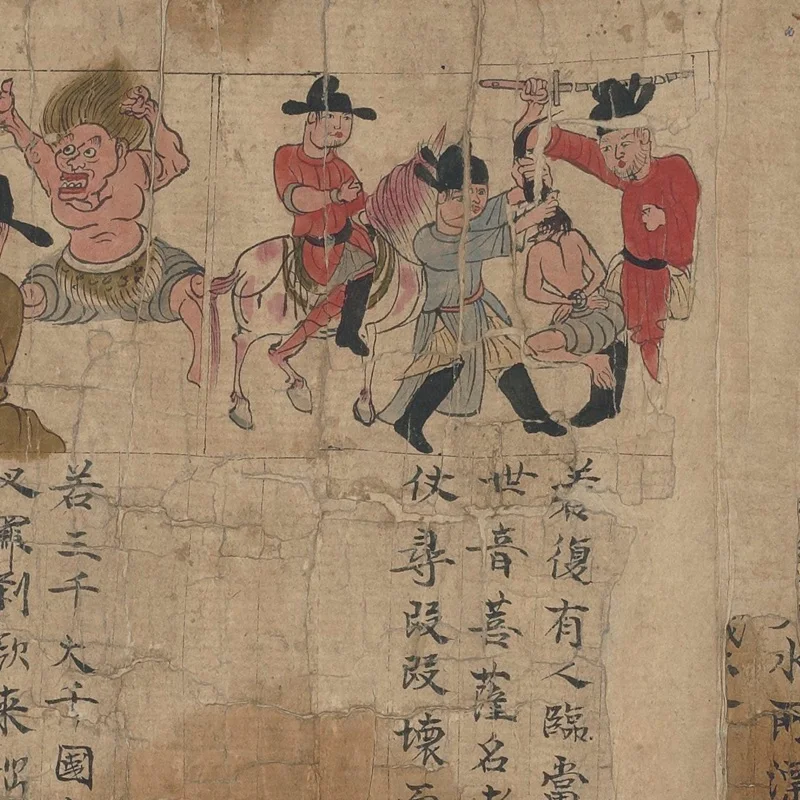 水所漂
若復有人臨當
世音菩薩名者
仗尋段段壞而
若三千大千國
叉羅剎欲来惱